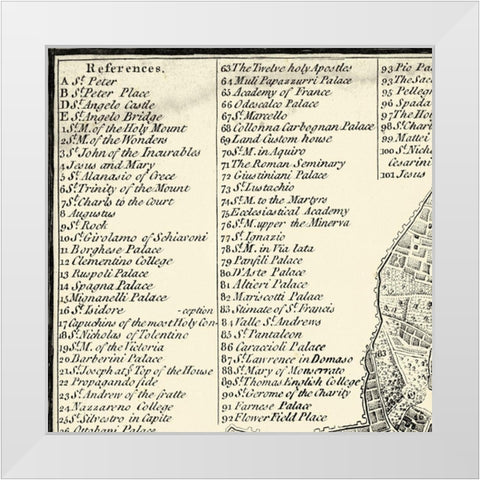 References.
A St. Peter
B St. Peter Place
D St. Angelo Castle
E St. Angelo Bridge
1 St. M. of the Holy Mount
2 St. M. of the Wonders
3 St. John of the Incurables
4 Jesus and Mary
5 St. Alanasio of Grece
6 St. Trinity of the Mount
7 St. Charls to the Court
8 Augustus
9 St. Rock
10 St. Girolamo of Schiavoni
11 Borghese Palace
12 Clementino College
13 Ruspoli Palace
14 Spagna Palace
15 Mignanelli Palace
16 St. Isidore -ception
17 Capuchins of the most Holy Con-
18 St. Nicholas of Tolentino
19 St. M. of the Victoria
20 Barberini Palace
21 St. Joseph at ye. Top of the House
22 Propagando fide
23 St. Andrew of the fratte
24 Nazzareno College
25 St. Silvestro in Capite
26 Ottoboni Palace
63 The Twelve holy Apostles
64 Muli Papazzurri Palace
65 Academy of France
66 Odescalco Palace
67 St. Marcello
68 Collonna Carbognan Palace
69 Land Custom house
70 St. M. in Aquiro
71 The Roman Seminary
72 Giustiniani Palace
73 St. Lustachio
74 St. M. to the Martyrs
75 Ecclesiastical Academy
76 St. M. upper the Minerva
77 St. Ignazio
78 St. M. in Via lata
79 Panfili Palace
80 D'Aste Palace
81 Altieri Palace
82 Mariscotti Palace
83 Stimate of St. Francis
84 Valle St. Andrews
85 St. Pantaleon
86 Caraccioli Palace
87 St. Lawrence in Domaso
88 St. Mary of Monserrato
89 St. Thomas English College
90 St. Gerome of the Charity
91 Farnese Palace
92 Flower Field Place
93 Pio Pa
93 The Sac
95 Pellegr
96 Spada
97 The Ho
98 St. Charl
99 Mattei
100 St. Nich
Cesarini
101 Jesus
163